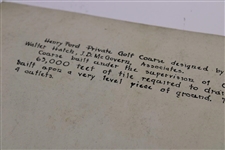 Henry Ford Private Golf Coarse designed by
Walter Hatch, J.B. McGovern, Associates.
Coarse built under the supervision of
65,000 feet of tile required to drain
Built apon a very level piece of ground.
4 outlets